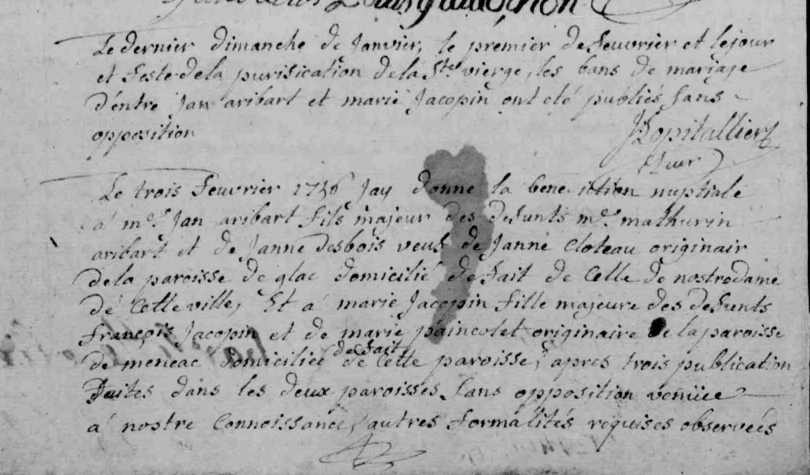 Le dernier dimanche de Janvier, le premier de feuvrier et le jour
et feste de la purification de la Ste vierge, les bans de mariaje
d'entre Jan aribart et marie Jacopin ont eté publiés sans
opposition
Hopitallier
Le trois feuvrier jay donne la bene iction nuptiale
a mr Jan aribart fils majeur des defunts mr mathurin
aribart et de Janne desbois veuf de Janne Cloteau originair
de la paroisse de glac domicilié de fait de Celle de nostre dame
de Cette ville, Et a marie Jacopin fille majeure des defunts
françois Jacopin et de marie paincolet originaire de la paroisse
de meneac domiciliée de fait de Cette paroisse, apres trois publication
faites dans les deux paroisses sans opposition venüe
a nostre Connoissance, autres formalités requises observées